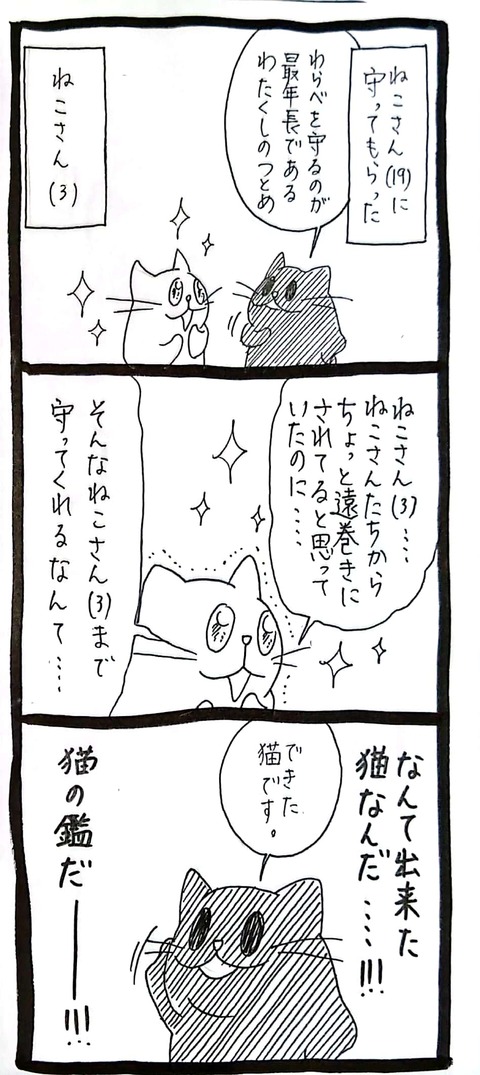 ねこさん(19)に
守ってもらった
わらべを守るのが
最年長である
わたくしのつとめ
ねこさん(3)
ねこさん(3)‥‥
ねこさんたちから
ちょっと遠巻きに
されてると思って
いたのに‥‥
そんなねこさん(3)まで
守ってくれるなんて‥‥
なんて出来た
猫なんだ‥‥!!!
できた
猫です。
猫の鑑だ――!!!